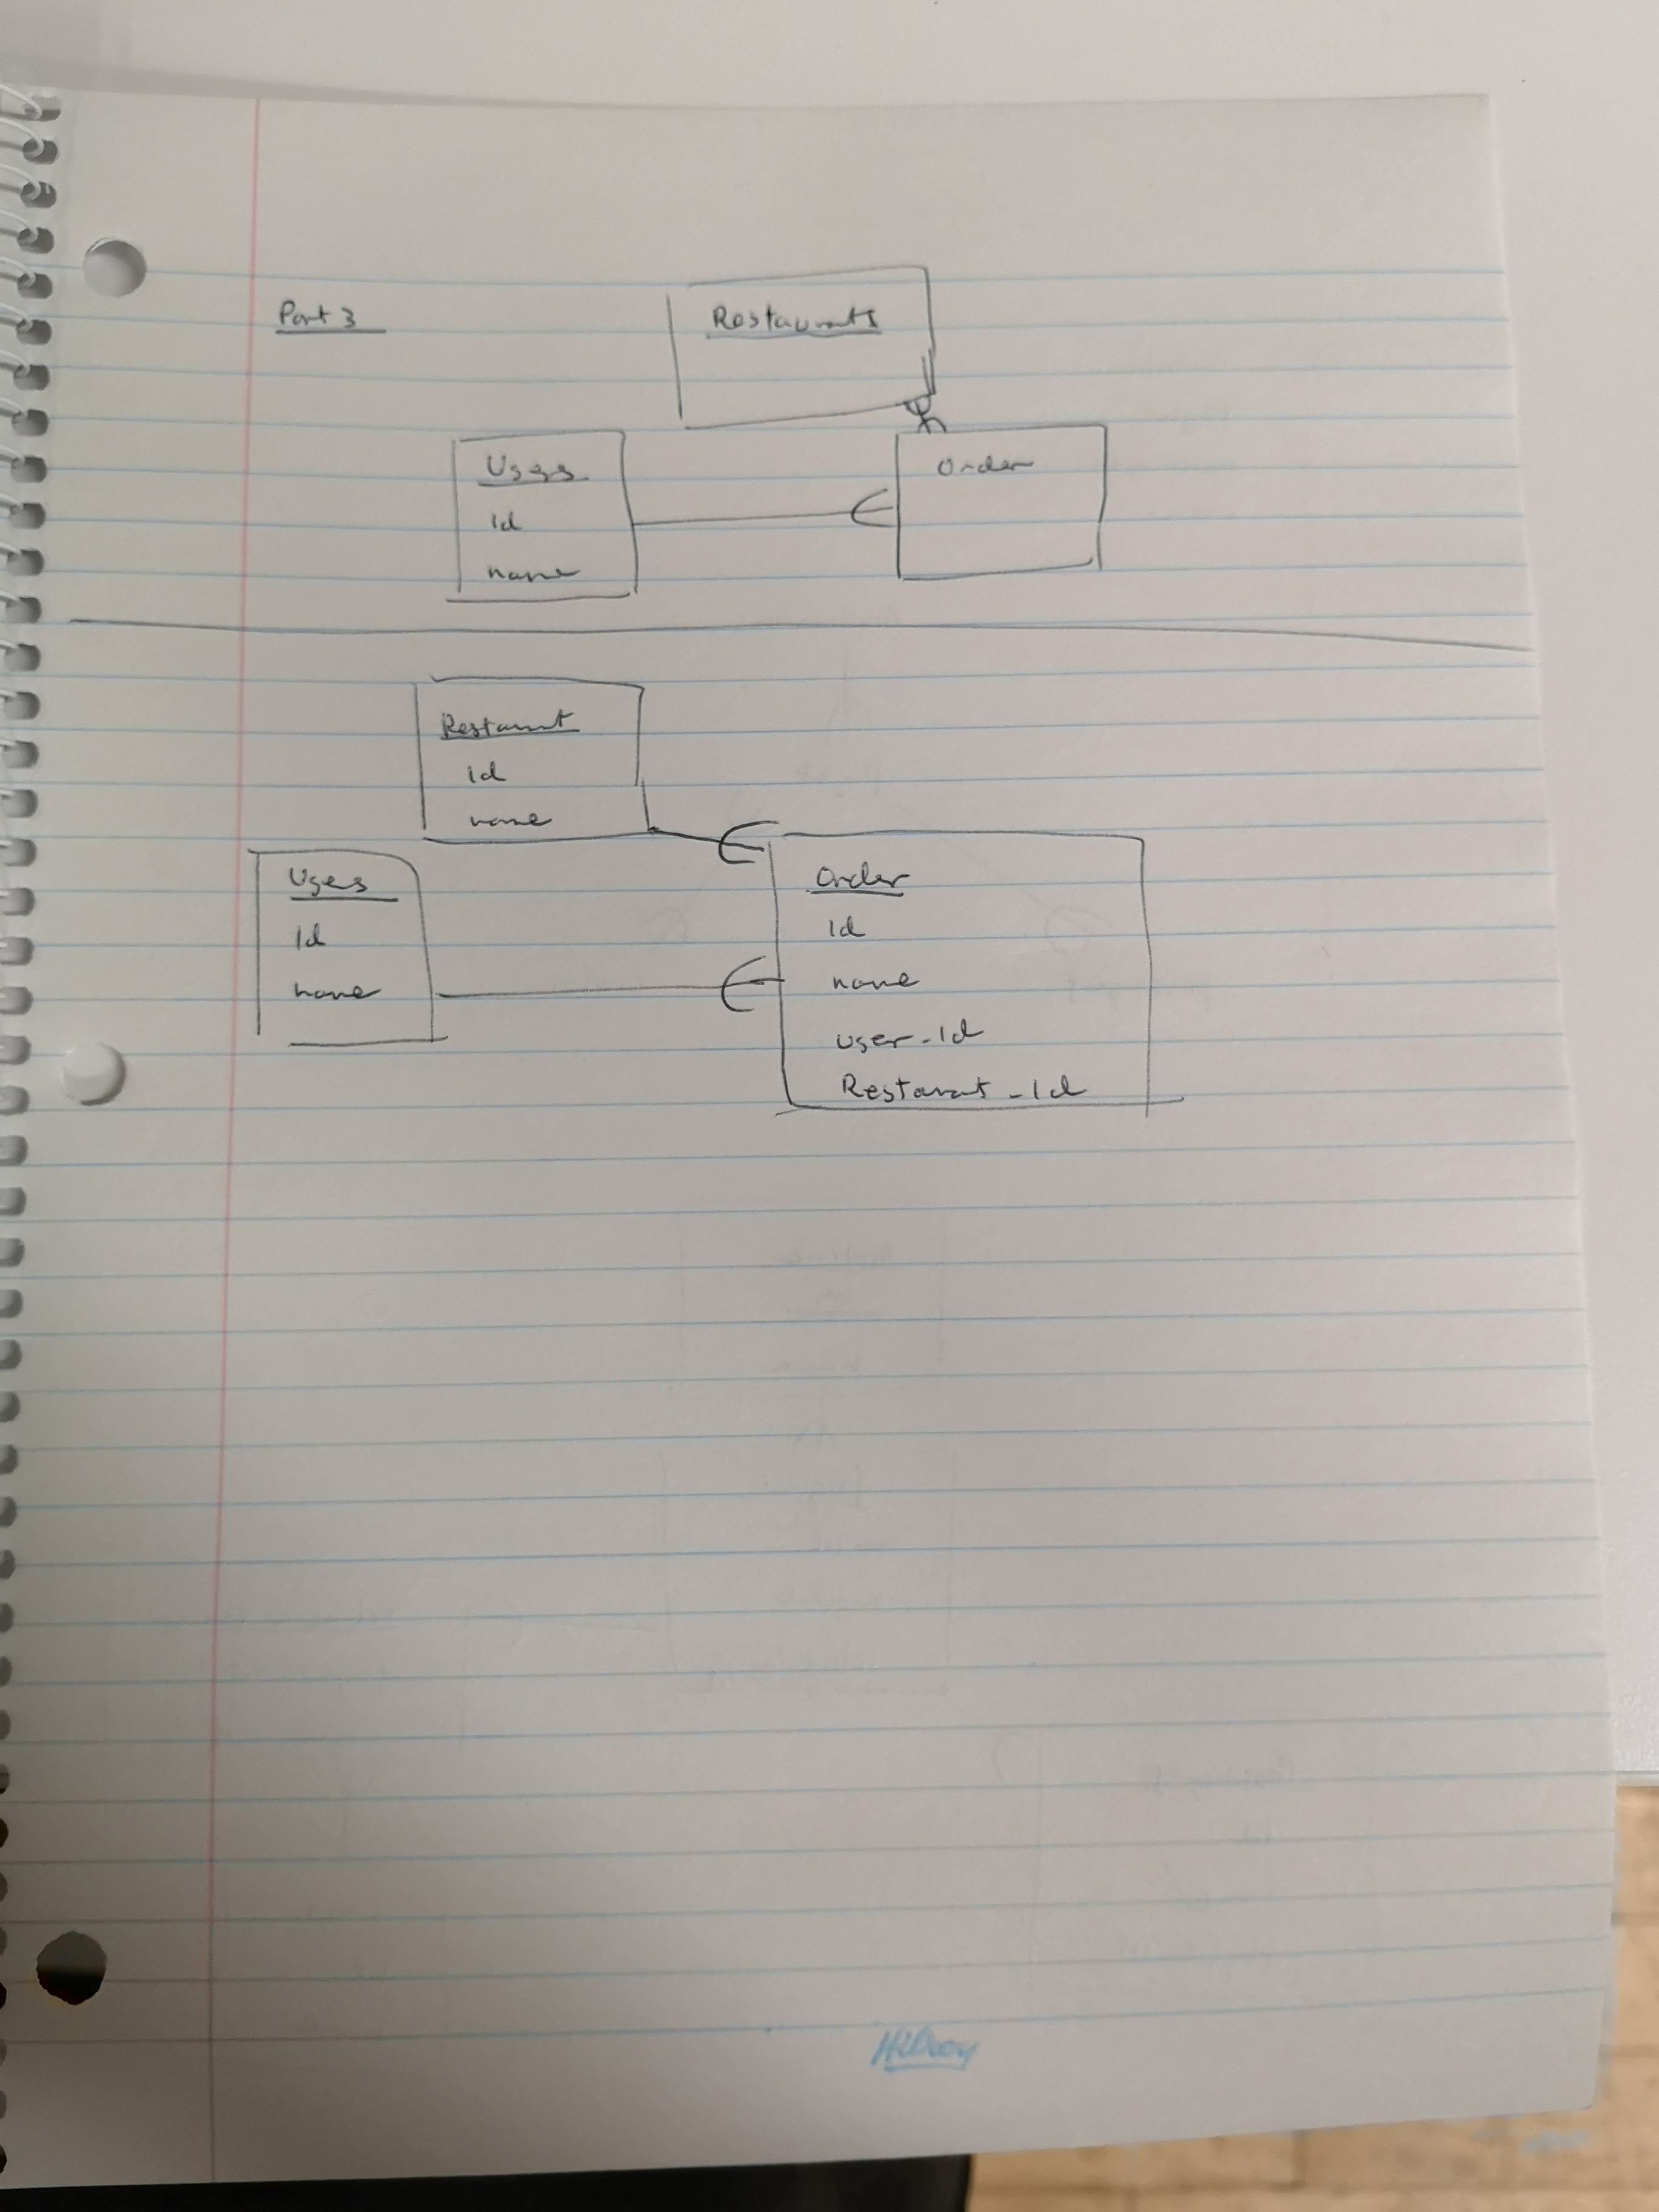 Part 3
Restaurants
Users
Id
name
Order
Restarant
id
name
Users
Id
name
Order
Id
name
user_Id
Restarant_Id
Hilroy